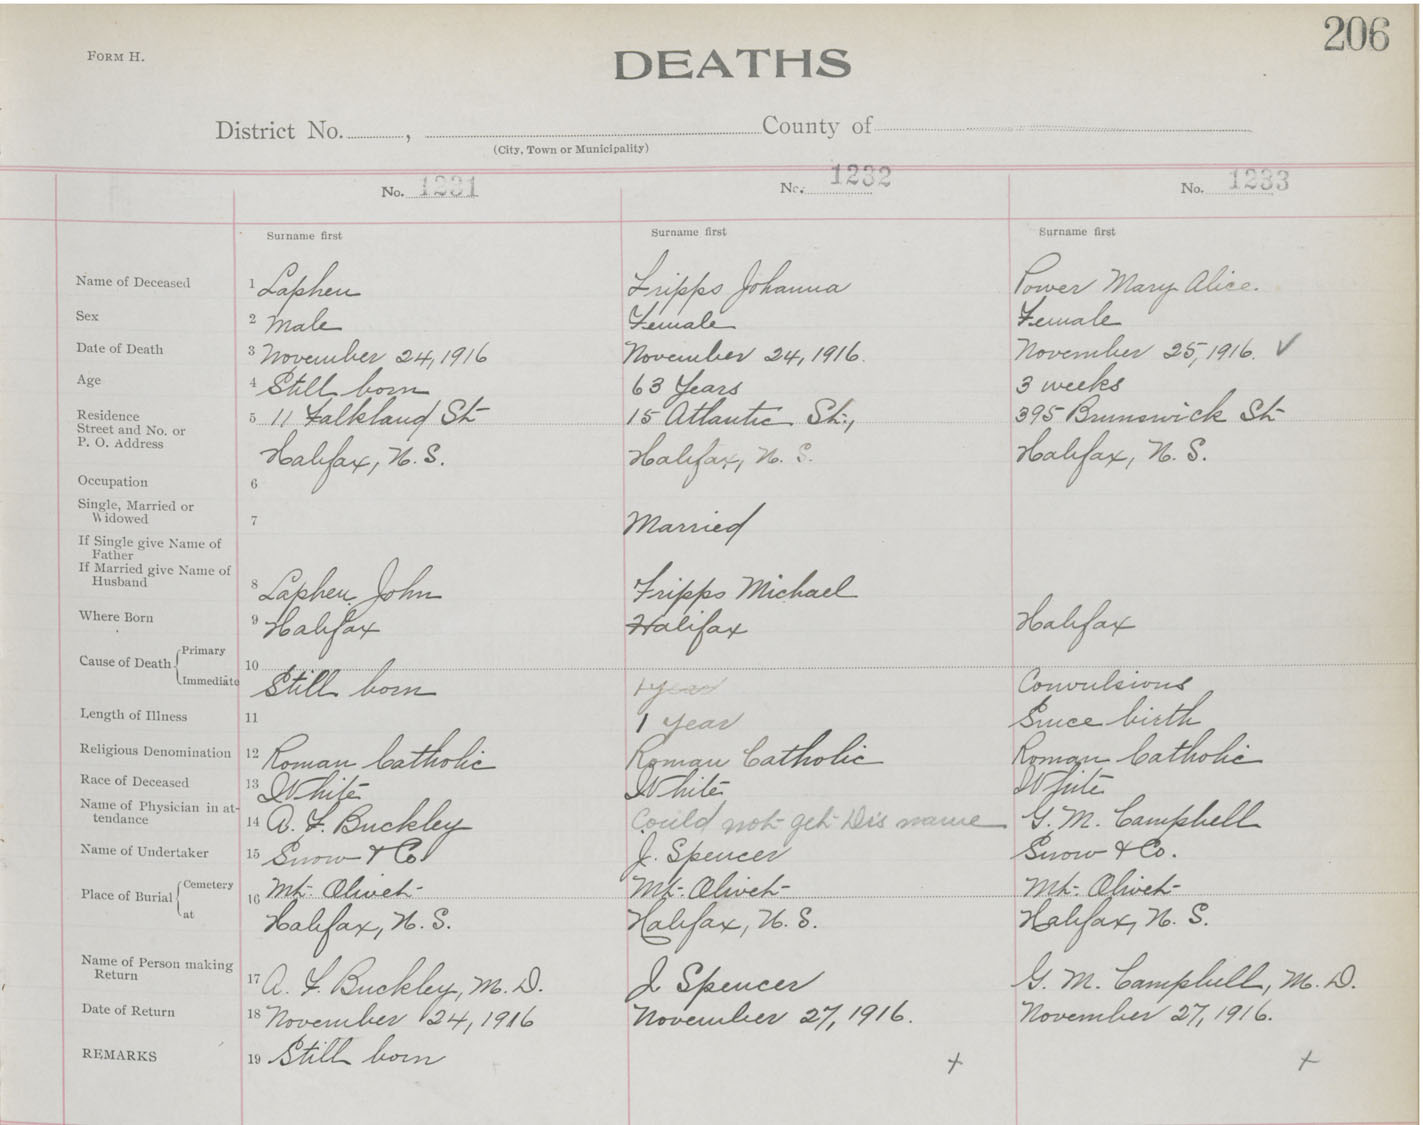 206
FORM H.
DEATHS
District No. , County of
(City, Town or Municipality)
No. 1231 No. 1232 No. 1233
Surname first Surname first Surname first
Name of Deceased 1 Laphen Fripps Johanna Power Mary Alice.
Sex 2 Male Female Female
Date of Death 3 November 24, 1916 November 24, 1916. November 25, 1916. ✓
Age 4 Still born 63 Years 3 weeks
Residence
Street and No. or 5 11 Falkland St 15 Atlantic St., 395 Brunswick St
P. O. Address Halifax, N. S. Halifax, N. S. Halifax, N. S.
Occupation 6
Single, Married or
Widowed 7 Married
If Single give Name of
Father
If Married give Name of
Husband 8 Laphen John Fripps Michael
Where Born 9 Halifax Halifax Halifax
Cause of Death Primary 10
Immediate Still born 1 year Convulsions
Length of Illness 11 1 year Since birth
Religious Denomination 12 Roman Catholic Roman Catholic Roman Catholic
Race of Deceased 13 White White White
Name of Physician in at-
tendance 14 A. F. Buckley Could not get Drs name G. M. Campbell
Name of Undertaker 15 Snow & Co J. Spencer Snow & Co.
Place of Burial Cemetery 16 Mt. Olivet Mt. Olivet Mt. Olivet
at Halifax, N. S. Halifax, N. S. Halifax, N. S.
Name of Person making
Return 17 A. F. Buckley, M. D. J Spencer G. M. Campbell, M. D.
Date of Return 18 November 24, 1916 November 27, 1916. November 27, 1916.
REMARKS 19 Still born + +